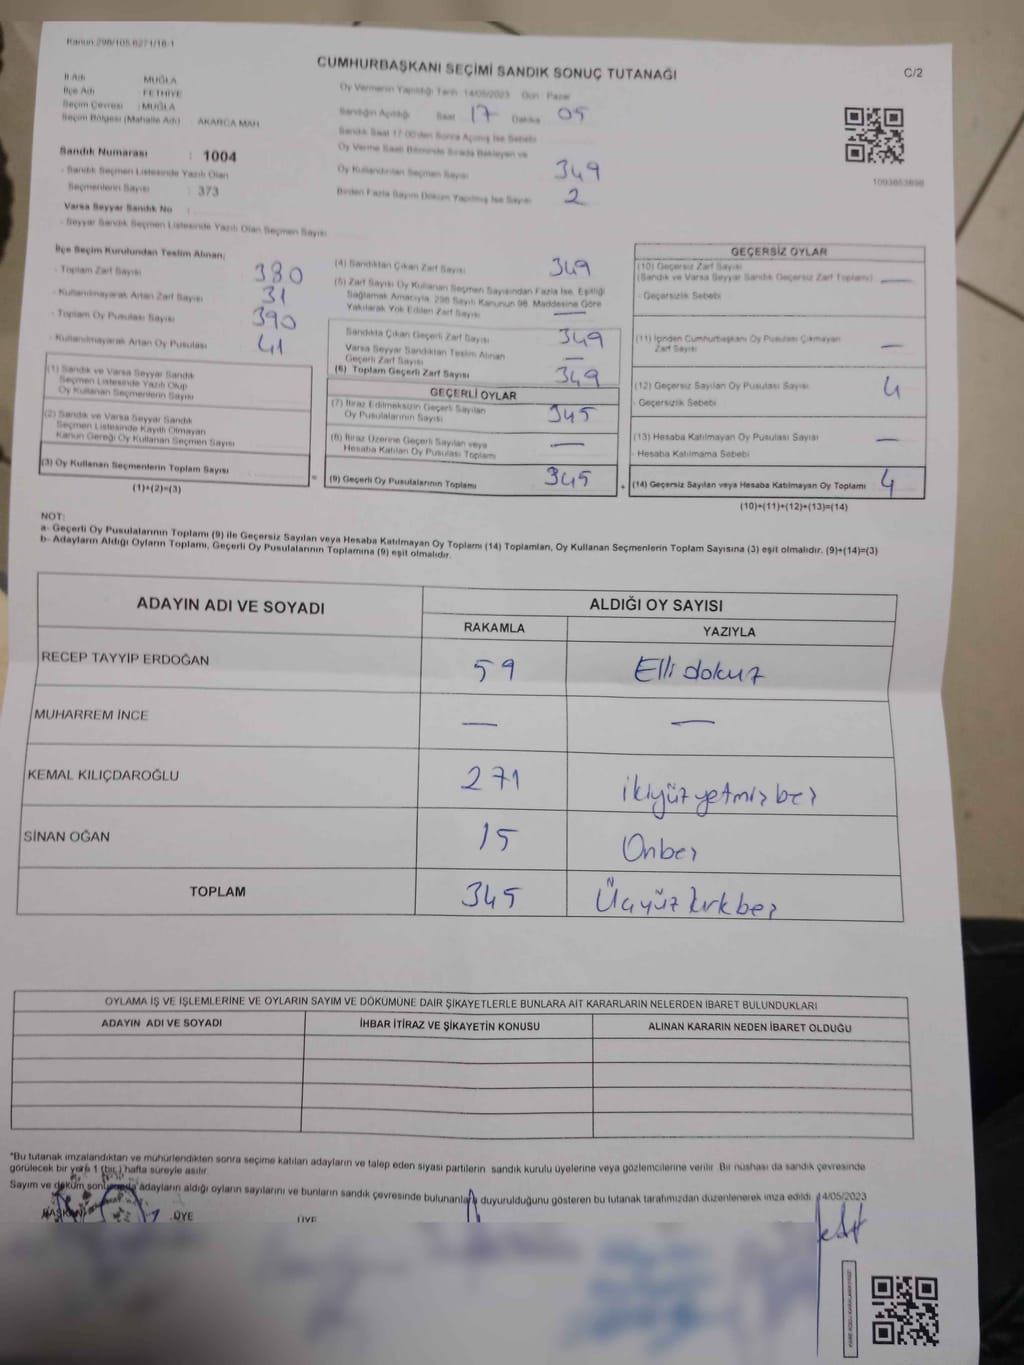 Kanun:298/105,6271/18-1
CUMHURBAŞKANI SEÇİMİ SANDIK SONUÇ TUTANAĞI
C/2
İl Adı : MUĞLA
İlçe Adı : FETHİYE
Seçim Çevresi : MUĞLA
Seçim Bölgesi (Mahalle Adı) : AKARCA MAH
Sandık Numarası : 1004
- Sandık Seçmen Listesinde Yazılı Olan
Seçmenlerin Sayısı : 373
Varsa Seyyar Sandık No :
- Seyyar Sandık Seçmen Listesinde Yazılı Olan Seçmen Sayısı
Oy Vermenin Yapıldığı Tarih :14/05/2023 Gün : Pazar
Sandığın Açıldığı Saat 17 Dakika 05
Sandık Saat 17:00'den Sonra Açılmış İse Sebebi
Oy Verme Saati Bitiminde Sırada Bekleyen ve
Oy Kullandırılan Seçmen Sayısı 349
Birden Fazla Sayım Döküm Yapılmış İse Sayısı 2
1093853898
İlçe Seçim Kurulundan Teslim Alınan;
- Toplam Zarf Sayısı 380
- Kullanılmayarak Artan Zarf Sayısı 31
- Toplam Oy Pusulası Sayısı 390
- Kullanılmayarak Artan Oy Pusulası 41
(1) Sandık ve Varsa Seyyar Sandık
Seçmen Listesinde Yazılı Olup
Oy Kullanan Seçmenlerin Sayısı
(2) Sandık ve Varsa Seyyar Sandık
Seçmen Listesinde Kayıtlı Olmayan
Kanun Gereği Oy Kullanan Seçmen Sayısı
(3) Oy Kullanan Seçmenlerin Toplam Sayısı
(1)+(2)=(3)
(4) Sandıktan Çıkan Zarf Sayısı 349
(5) Zarf Sayısı Oy Kullanan Seçmen Sayısından Fazla İse, Eşitliği
Sağlamak Amacıyla, 298 Sayılı Kanunun 98. Maddesine Göre
Yakılarak Yok Edilen Zarf Sayısı —
Sandıkta Çıkan Geçerli Zarf Sayısı 349
Varsa Seyyar Sandıktan Teslim Alınan
Geçerli Zarf Sayısı —
(6) Toplam Geçerli Zarf Sayısı 349
GEÇERLİ OYLAR
(7) İtiraz Edilmeksizin Geçerli Sayılan
Oy Pusulalarının Sayısı 345
(8) İtiraz Üzerine Geçerli Sayılan veya
Hesaba Katılan Oy Pusulası Toplamı —
= (9) Geçerli Oy Pusulalarının Toplamı 345
GEÇERSİZ OYLAR
(10) Geçersiz Zarf Sayısı
(Sandık ve Varsa Seyyar Sandık Geçersiz Zarf Toplamı) —
- Geçersizlik Sebebi
(11) İçinden Cumhurbaşkanı Oy Pusulası Çıkmayan
Zarf Sayısı —
(12) Geçersiz Sayılan Oy Pusulası Sayısı 4
- Geçersizlik Sebebi
(13) Hesaba Katılmayan Oy Pusulası Sayısı —
- Hesaba Katılmama Sebebi
+ (14) Geçersiz Sayılan veya Hesaba Katılmayan Oy Toplamı 4
(10)+(11)+(12)+(13)=(14)
NOT:
a- Geçerli Oy Pusulalarının Toplamı (9) ile Geçersiz Sayılan veya Hesaba Katılmayan Oy Toplamı (14) Toplamları, Oy Kullanan Seçmenlerin Toplam Sayısına (3) eşit olmalıdır. (9)+(14)=(3)
b- Adayların Aldığı Oyların Toplamı, Geçerli Oy Pusulalarının Toplamına (9) eşit olmalıdır.
ADAYIN ADI VE SOYADI ALDIĞI OY SAYISI
RAKAMLA YAZIYLA
RECEP TAYYİP ERDOĞAN 59 Elli dokuz
MUHARREM İNCE — —
KEMAL KILIÇDAROĞLU 271 ikiyüz yetmiş beş
SİNAN OĞAN 15 Onbeş
TOPLAM 345 Üçyüz kırkbeş
OYLAMA İŞ VE İŞLEMLERİNE VE OYLARIN SAYIM VE DÖKÜMÜNE DAİR ŞİKAYETLERLE BUNLARA AİT KARARLARIN NELERDEN İBARET BULUNDUKLARI
ADAYIN ADI VE SOYADI İHBAR İTİRAZ VE ŞİKAYETİN KONUSU ALINAN KARARIN NEDEN İBARET OLDUĞU
*Bu tutanak imzalandıktan ve mühürlendikten sonra seçime katılan adayların ve talep eden siyasi partilerin sandık kurulu üyelerine veya gözlemcilerine verilir. Bir nüshası da sandık çevresinde
görülecek bir yere 1 (bir) hafta süreyle asılır.
Sayım ve döküm sonucunda adayların aldığı oyların sayılarını ve bunların sandık çevresinde bulunanlara duyurulduğunu gösteren bu tutanak tarafımızdan düzenlenerek imza edildi. 14/05/2023
BAŞKAN ÜYE ÜYE